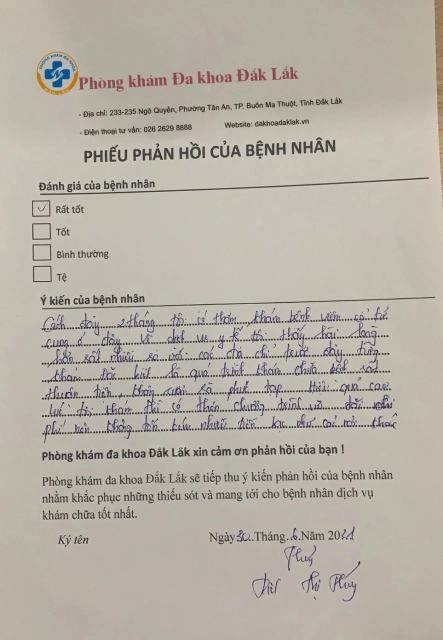 PHÒNG KHÁM ĐA KHOA
Phòng khám Đa khoa Đắk Lắk
- Địa chỉ: 233-235 Ngô Quyền, Phường Tân An, TP. Buôn Ma Thuột, Tỉnh Đắk Lắk
- Điện thoại tư vấn: 026 2629 8888 Website: dakhoadaklak.vn
PHIẾU PHẢN HỒI CỦA BỆNH NHÂN
Đánh giá của bệnh nhân
Rất tốt
Tốt
Bình thường
Tệ
Ý kiến của bệnh nhân
Cách đây 2 tháng tôi có thăm khám bệnh viêm cổ tử
cung ở đây. Về dịch vụ y tế tôi thấy hài lòng
hơn rất nhiều so với các địa chỉ trước đây từng
khám đặc biệt là quá trình khám chữa rất
thuận tiện, không rườm rà phức tạp. Hiệu quả cao.
lúc đi khám thì có thêm chương trình ưu đãi
phí nên không tốn nhiều tiền như các nơi khác
Phòng khám đa khoa Đắk Lắk xin cảm ơn phản hồi của bạn !
Phòng khám đa khoa Đắk Lắk sẽ tiếp thu ý kiến phản hồi của bệnh nhân
nhằm khắc phục những thiếu sót và mang tới cho bệnh nhân dịch vụ
khám chữa tốt nhất.
Ký tên Ngày 30 Tháng 6 Năm 2021
Thuý
Thị Thuý